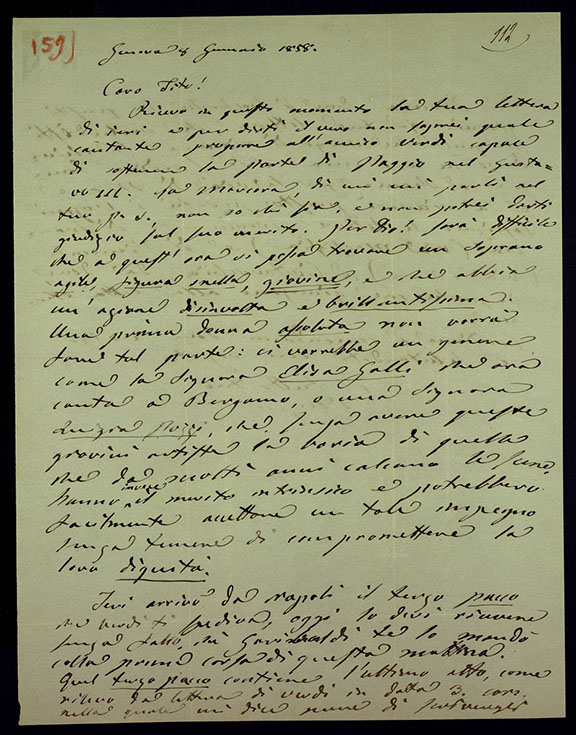 159)
112
Genova 8 Gennaio 1858.
Caro Tito!
Ricevo in questo momento la tua lettera
di ieri e per dirti il vero non saprei quale
cantante proporre all'amico Verdi capace
di sostenere la parte di Paggio nel Gusta-
vo III. La Marcora, di cui mi parli nel
tuo P.S., non so chi sia, e non potrei darti
giudizio sul suo merito. Per Dio! sarà difficile
che a quest'ora si possa trovare un soprano
agile, figura snella, giovine, e che abbia
un'azione disinvolta e brillantissima.
Una prima donna assoluta non vorrà
fare tal parte: ci vorrebbe un genere
come la Signora Elisa Galli che ora
canta a Bergamo, o una Signora
che senza avere queste
giovini artiste la boria di quelle
che da molti anni calcano le scene
hanno invece il merito intrinseco e potrebbero
facilmente accettare un tale impegno
senza temere di compromettere la
loro dignità.
Ieri arrivò da Napoli il terzo pacco
che Verdi ti spediva, oggi lo devi ricevere
senza fallo, chè te lo mandò
colla prima corsa di questa mattina.
Quel terzo pacco contiene l'ultimo atto, come
rilevo da lettera di Verdi in data 3. corr.
nella quale mi dice